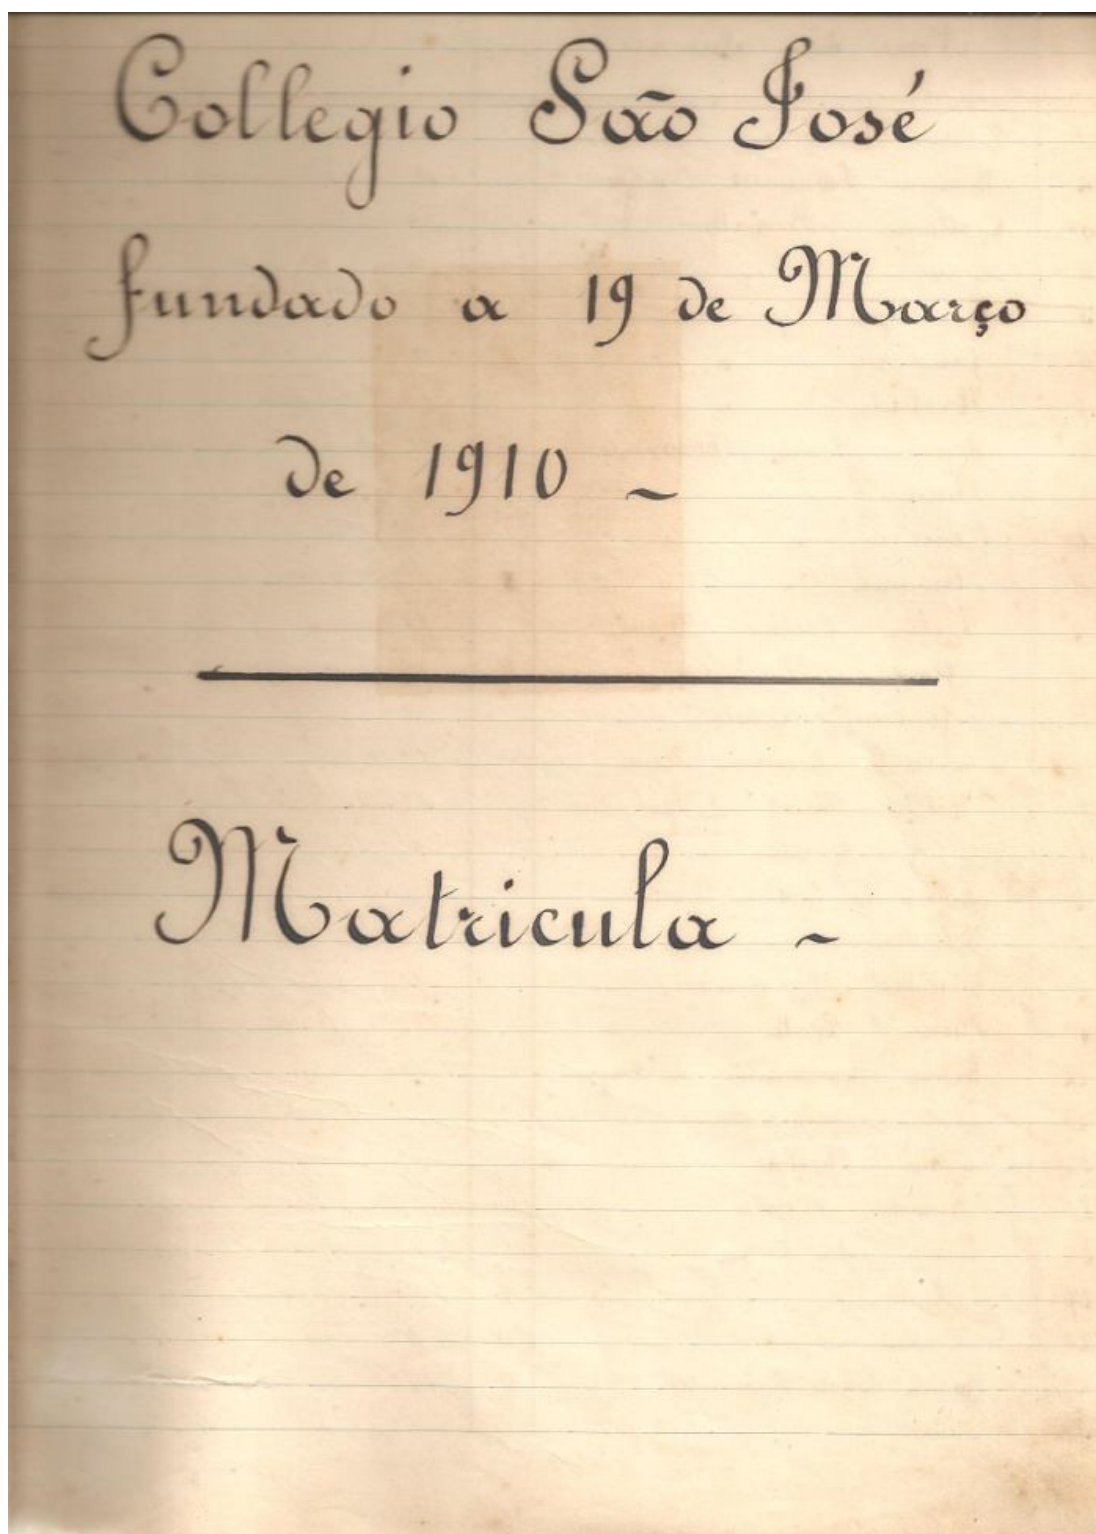 Collegio São José
fundado a 19 de Março
de 1910 ~
Matricula ~